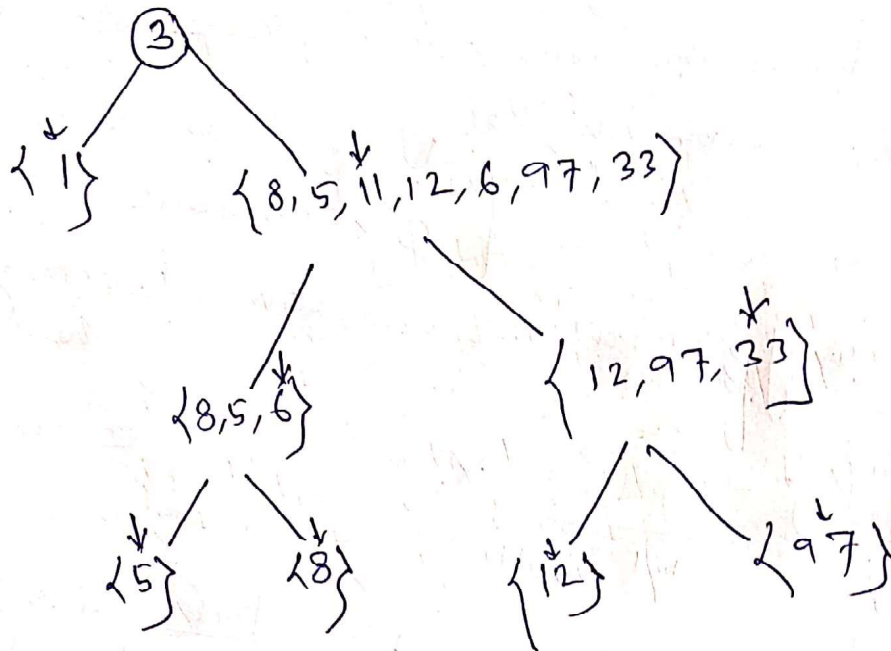 3
{1}
{8, 5, 11, 12, 6, 97, 33}
{8,5,6}
{12,97,33}
{5}
{8}
{12}
{97}